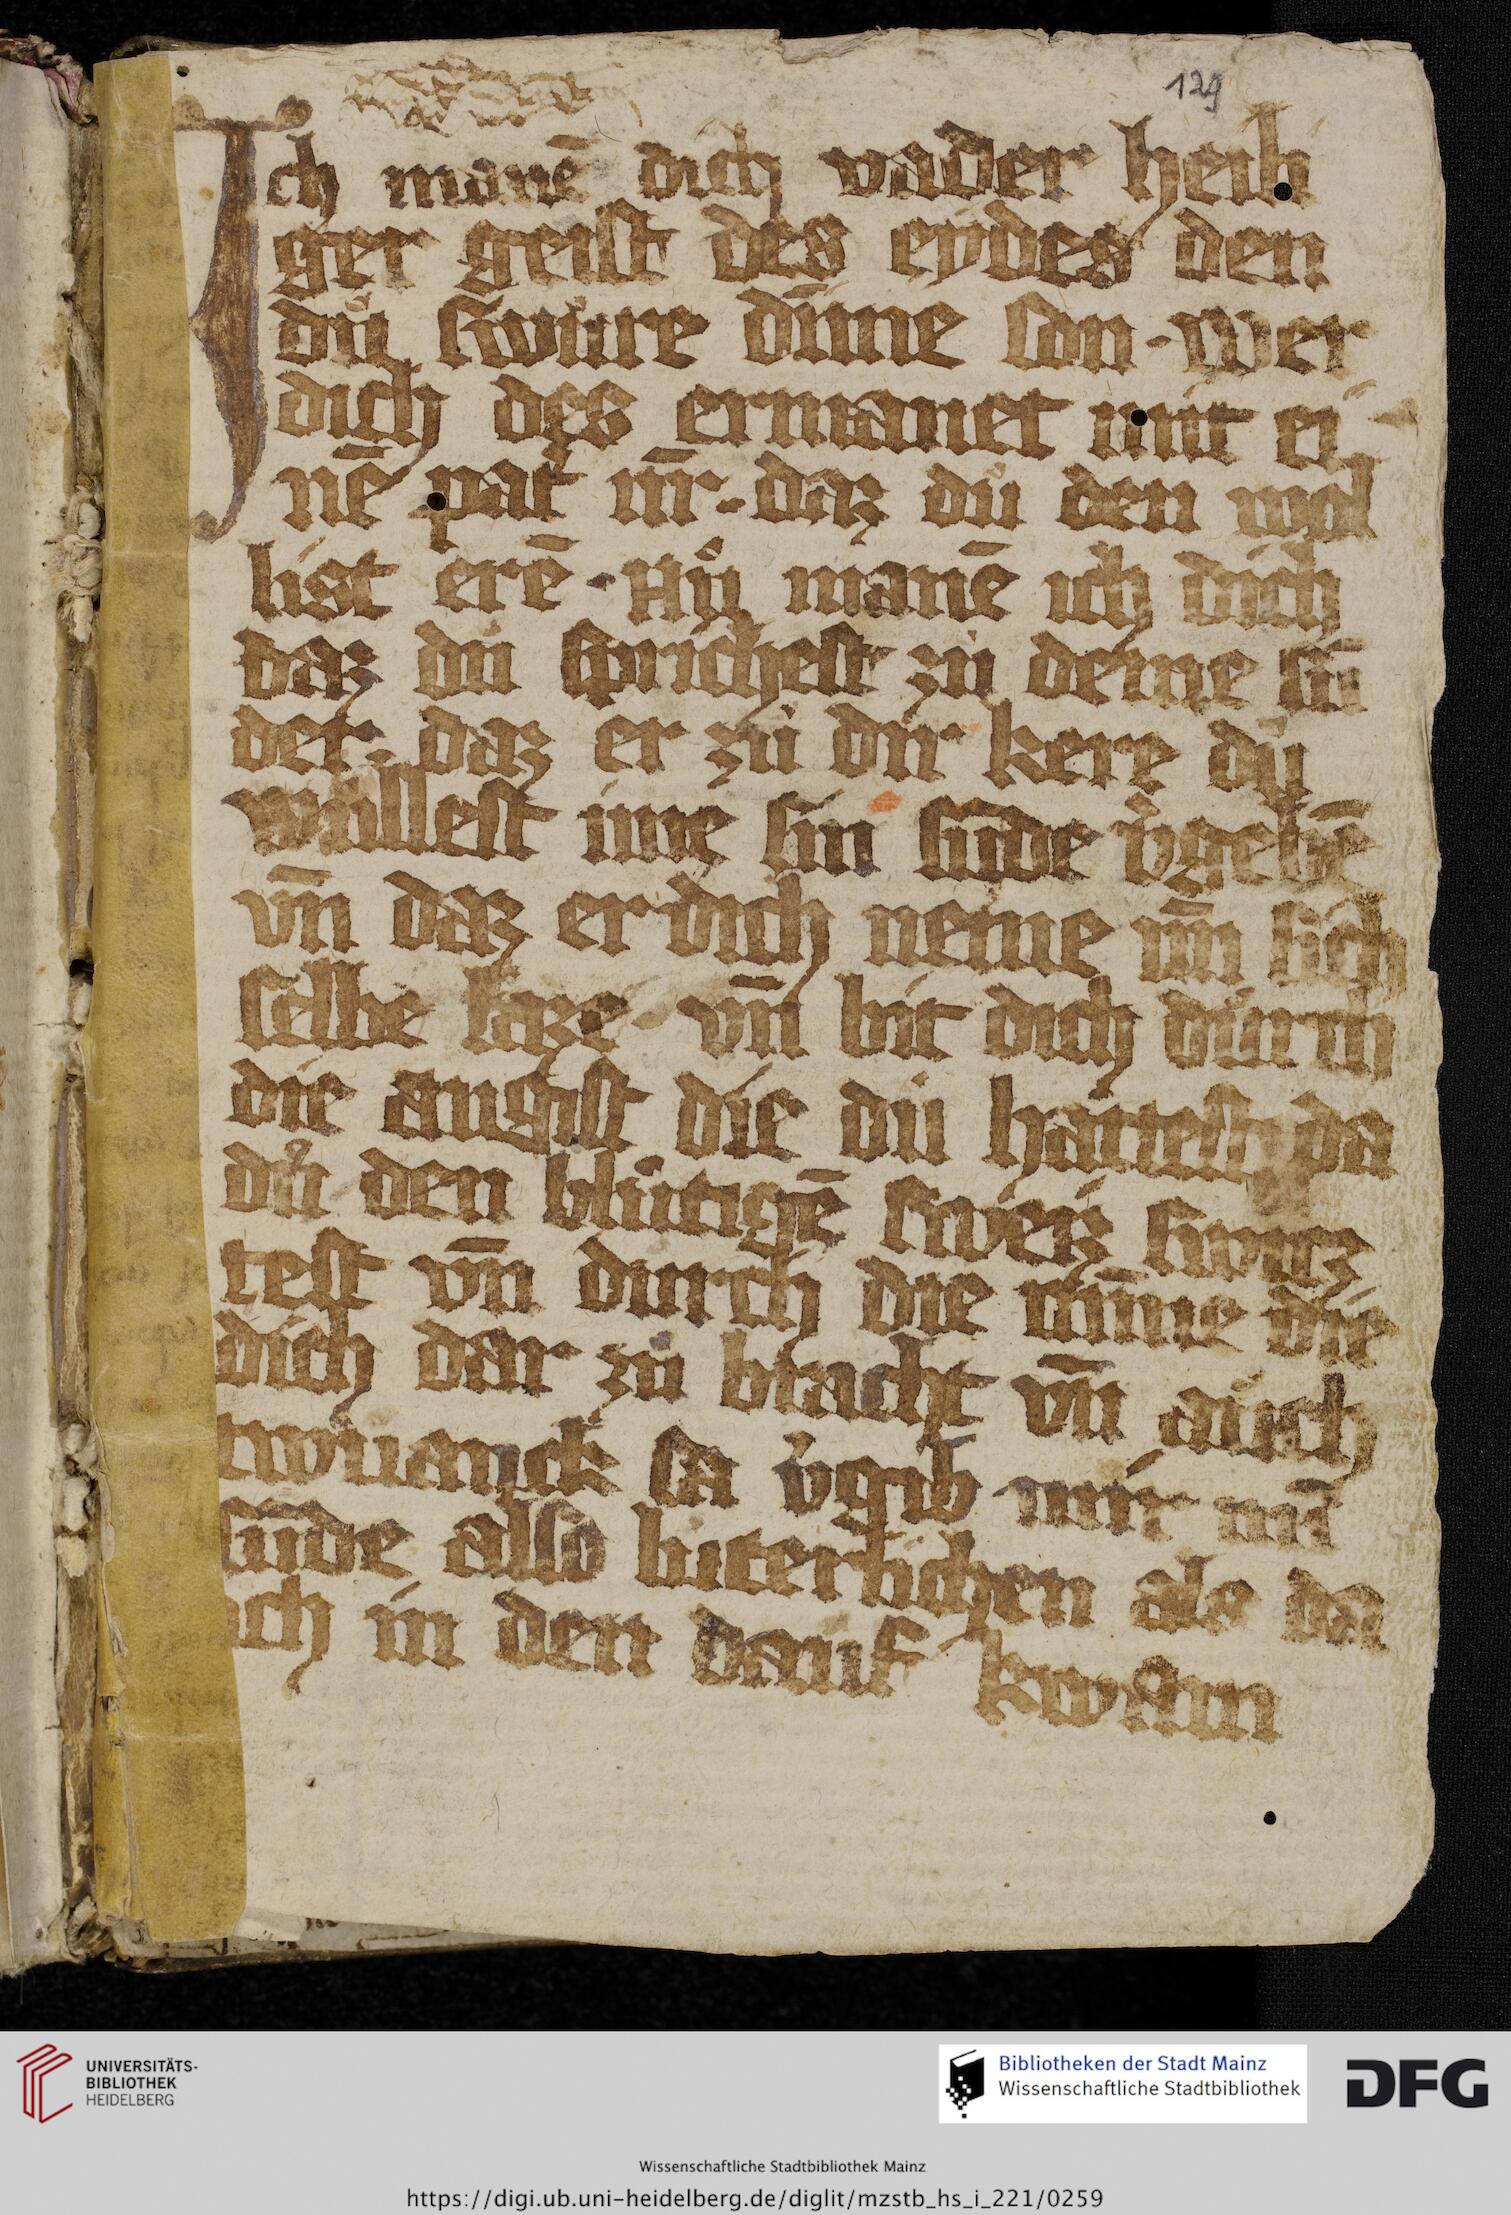 129
Ich manē dich vader heili
ger geist des eydes den
dů swůre dīme son · wer
dich des ermanet mit ei
nē pat̄ nr̄ · daz dů den wol
list erē · Nů manē ich dich
daz dů sprichest zů deme sū
der · daz er zů dir kere dů
wüllest ime sin sūde v̓gebē
vn̄ daz er dich neme vn̄ sich
selbe laze · vn̄ bit dich důrch
die angist die dů hattest da
dů den blůtigē sweiz switz
test vn̄ durch die mīne die
dich dar zů bracht vn̄ auch
twůanck la v̓gib mir mī
sūde also luterlichen als da
ich in den dauf kwam
UNIVERSITÄTS-
BIBLIOTHEK
HEIDELBERG
Bibliotheken der Stadt Mainz
Wissenschaftliche Stadtbibliothek
DFG
Wissenschaftliche Stadtbibliothek Mainz
https://digi.ub.uni-heidelberg.de/diglit/mzstb_hs_i_221/0259